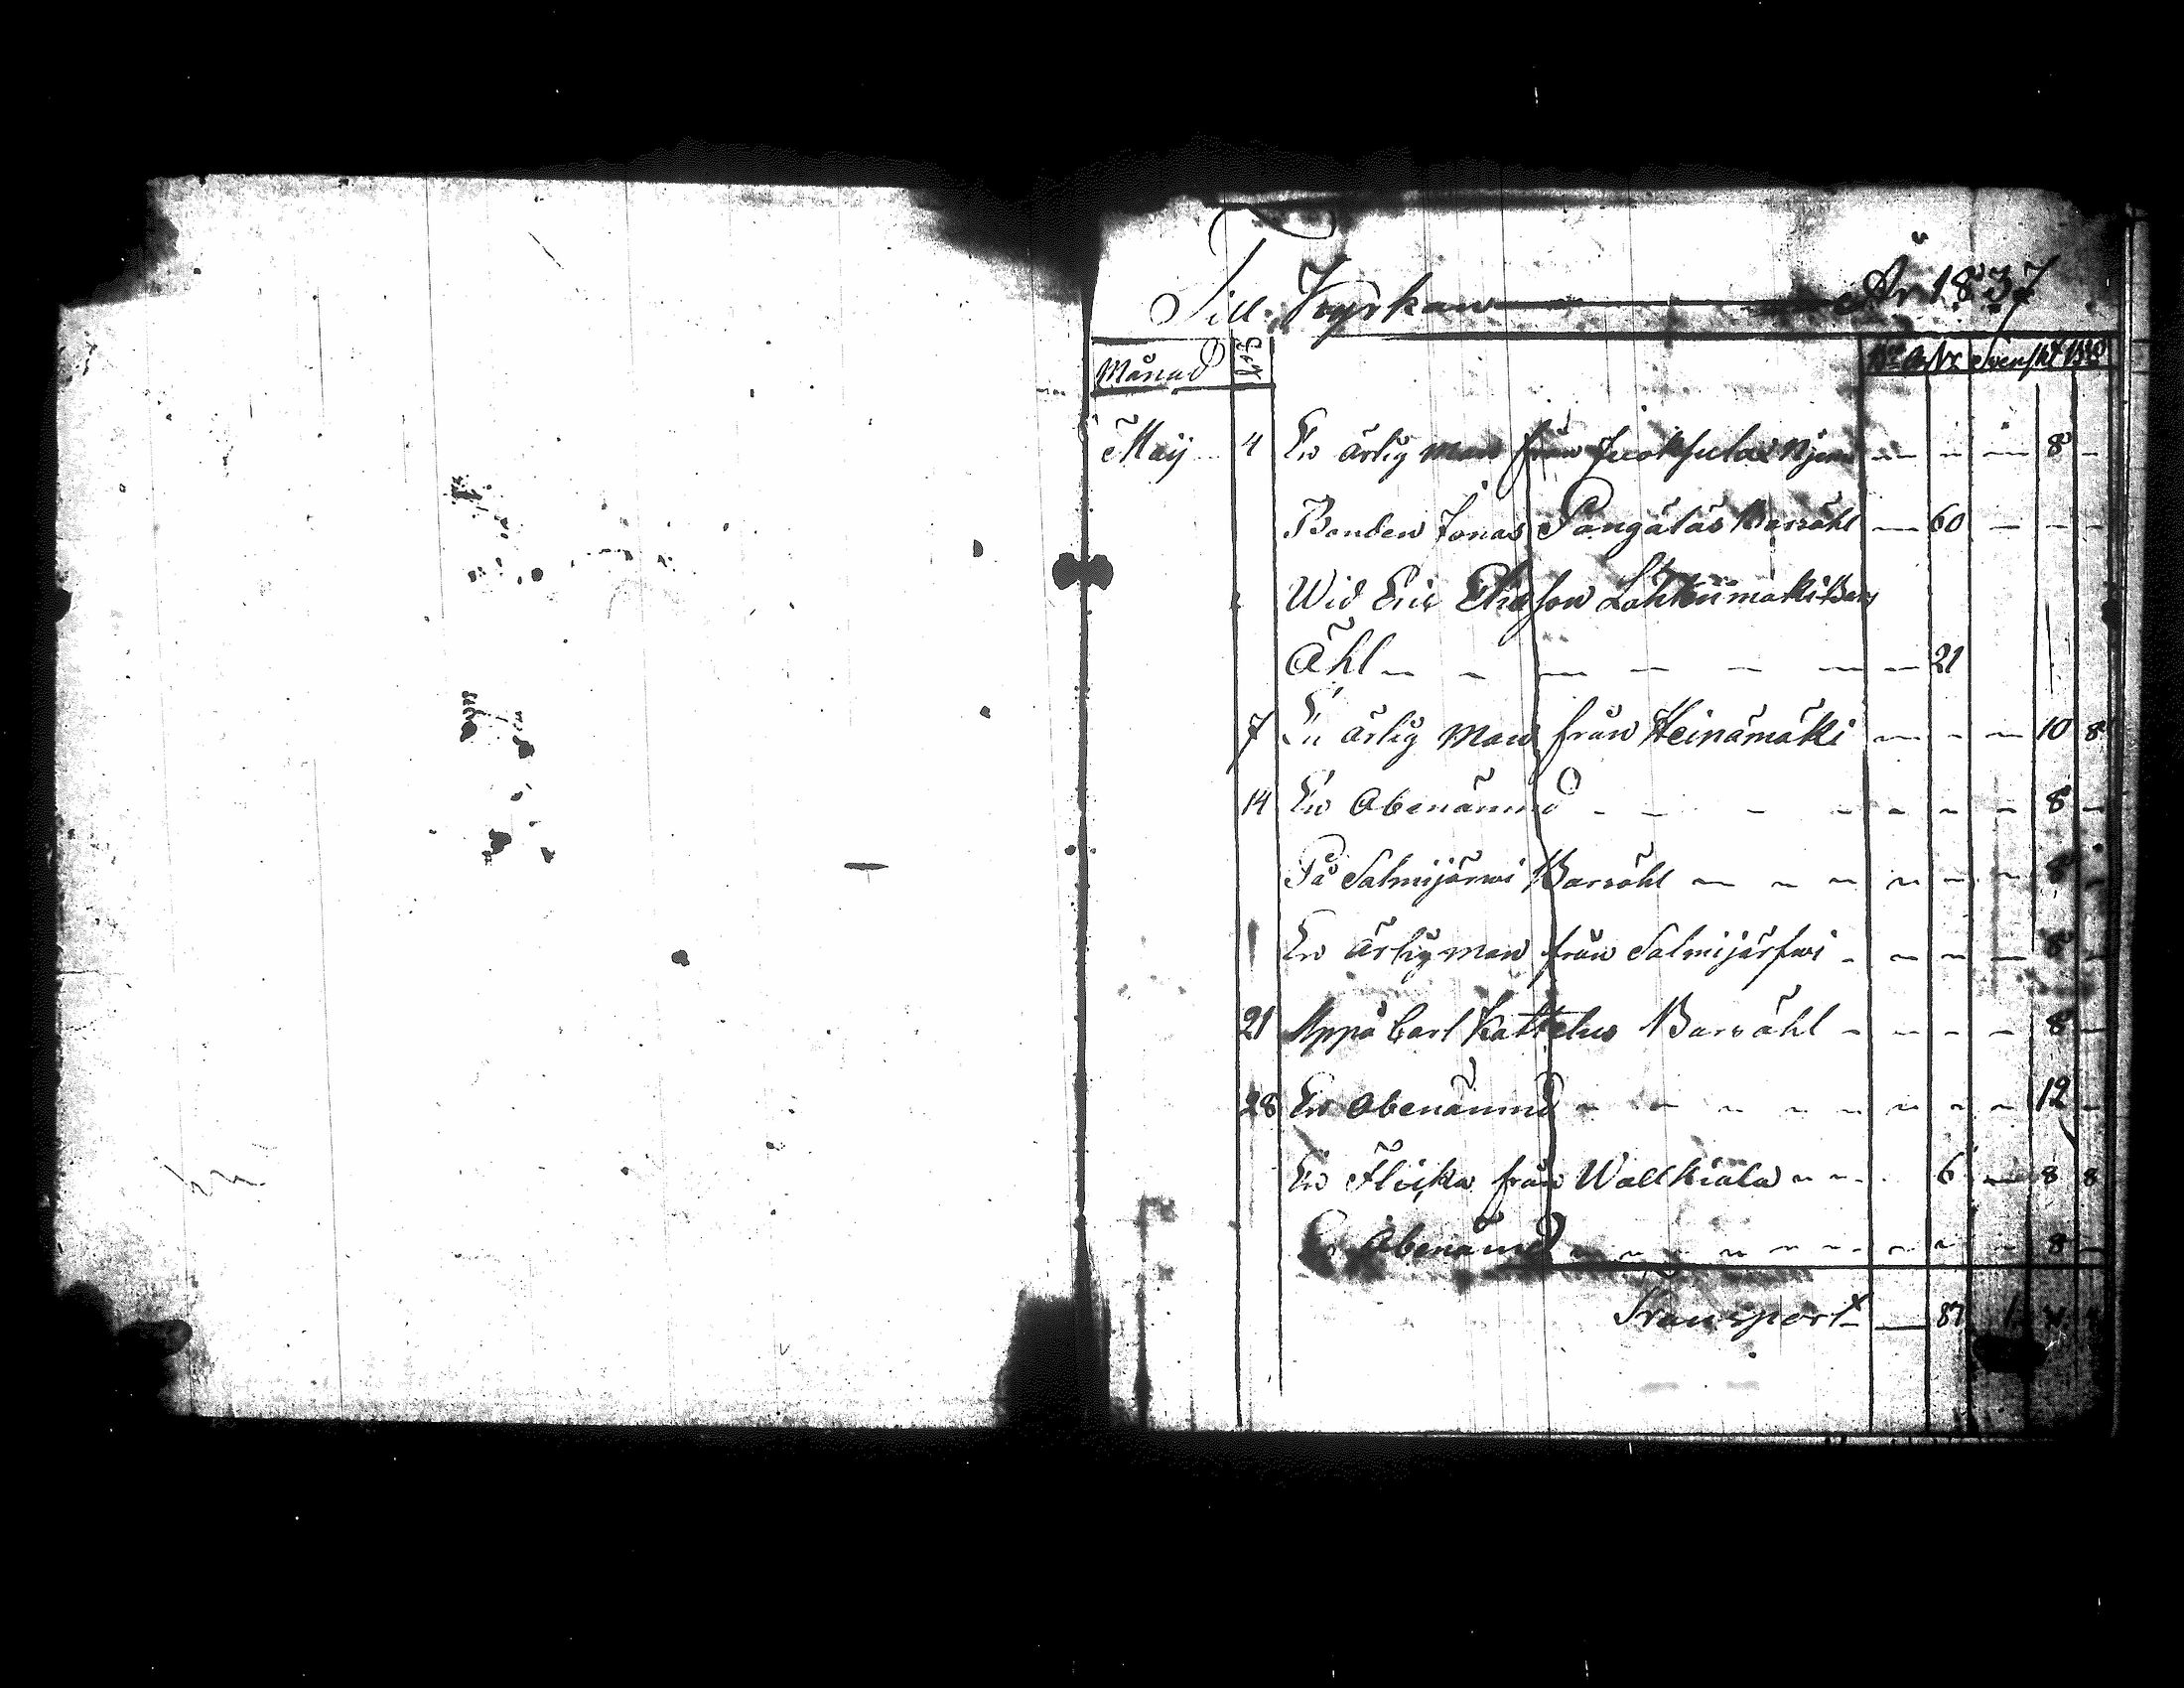 Till Kyrkan År 1837
Månad Dag Rubl. Svenskt Bko
Maij 4 En ärlig man från 8
Bonden Jonas Pangälas Barnöhl 60
Wid Eric Eliason Lähtenmäki Barns
Öhl 21
7 En ärlig man från Heinämäki 10 8
14 En Obenämnd 8
På Salmijärwi Barnöhl 8
En ärlig man från Salmijärfwi 8
21 Uppå Carl Kattelus Barnöhl 8
28 En Obenämnd 12
En Flicka från Wallkiala 6 8 8
En Obenämd 8
Transport 87 1